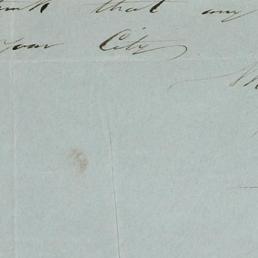 that any
your City